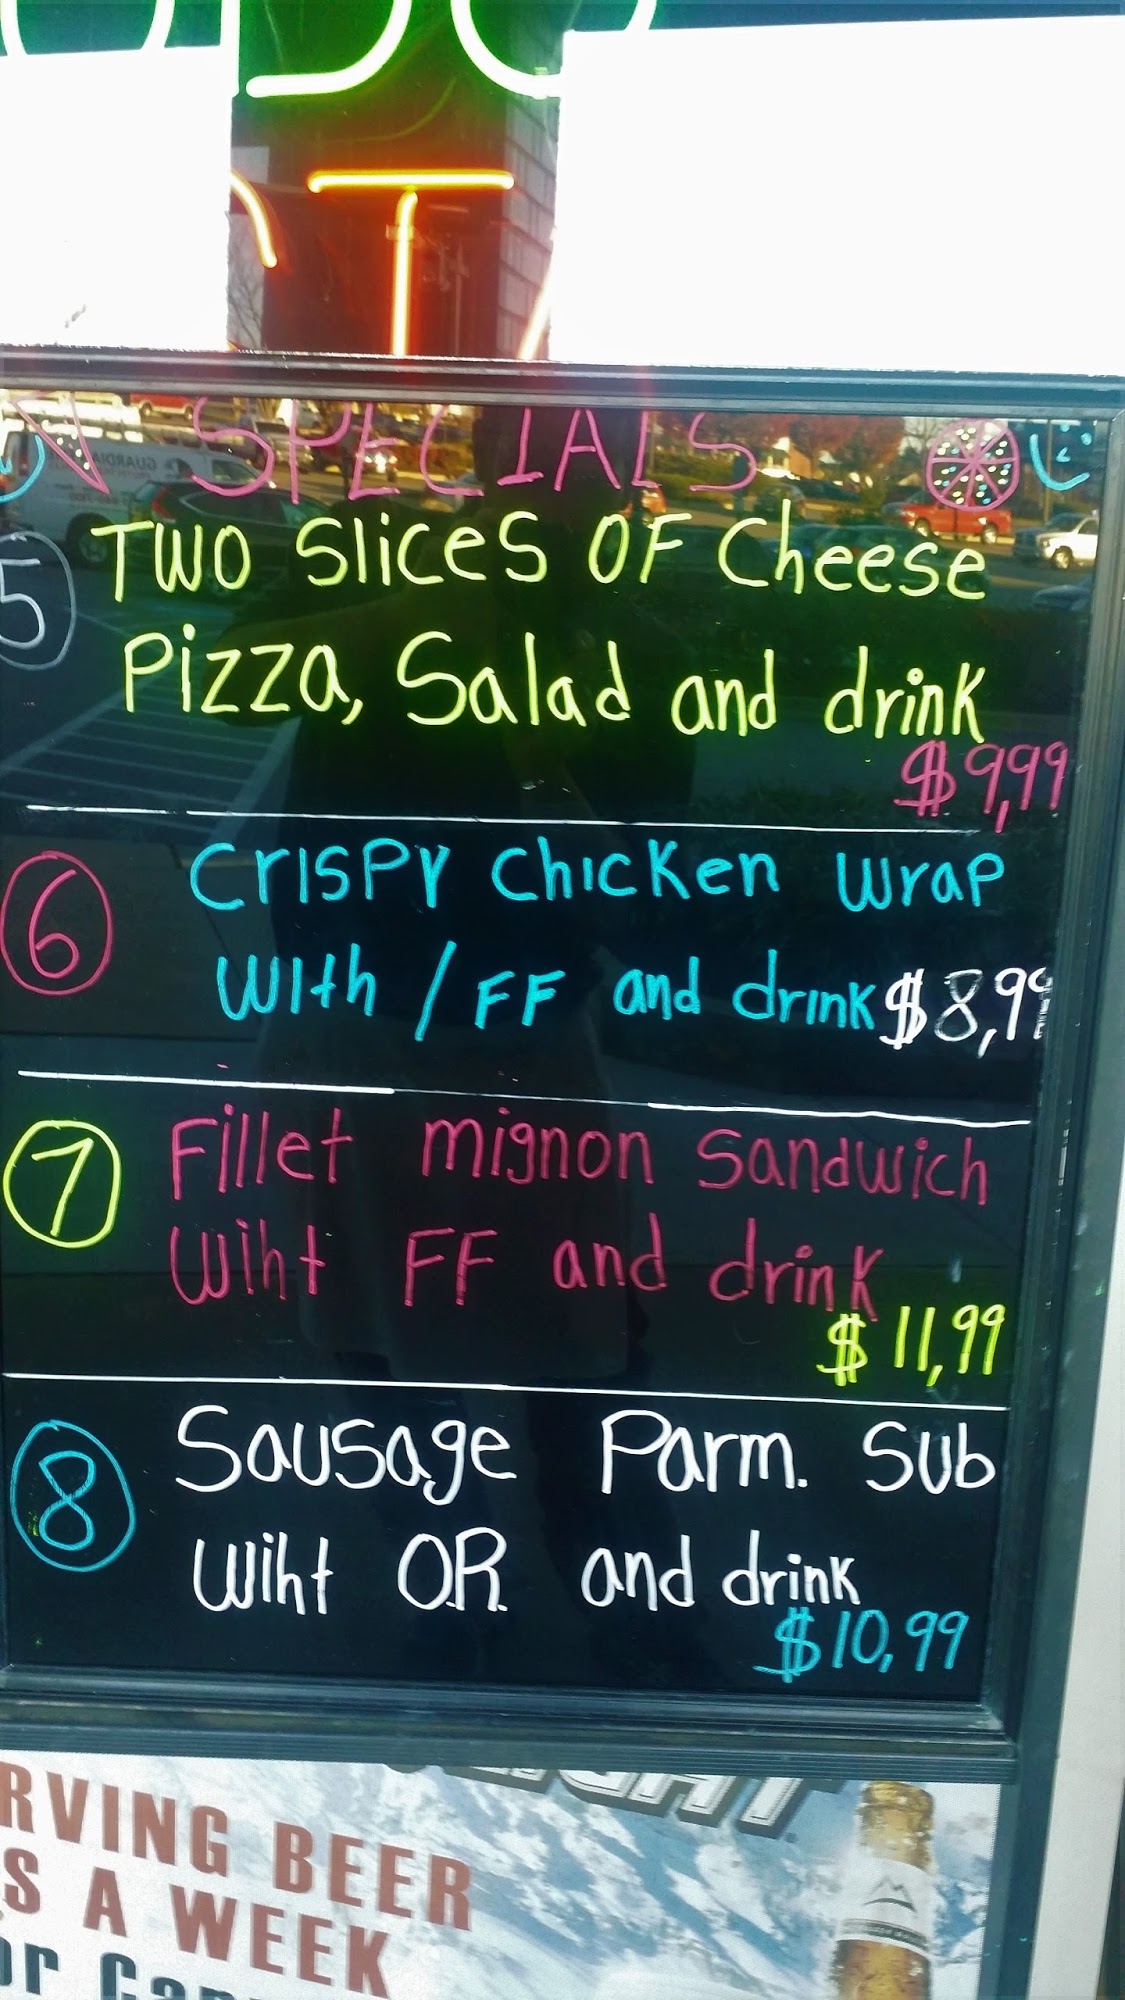 SPECIALS
5 TWO Slices OF Cheese
Pizza, Salad and drink
$9,99
6 Crispy chicken wrap
with / FF and drink $8,99
7 Fillet mignon Sandwich
Wiht FF and drink
$11,99
8 Sausage Parm. Sub
Wiht O.R. and drink
$10,99
RVING BEER
S A WEEK